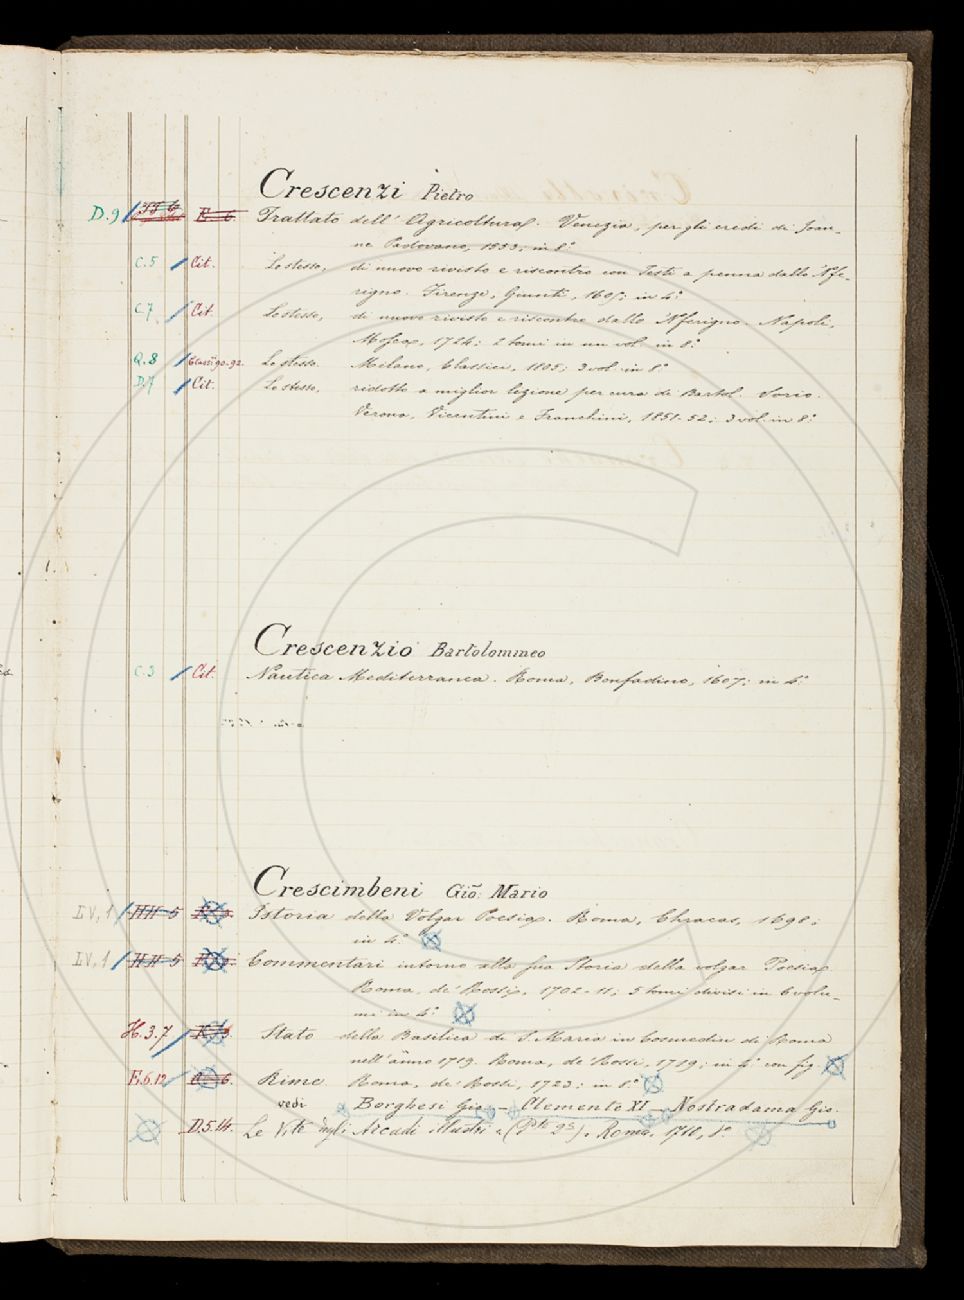 Crescenzi Pietro
D.9 FF 6 E. 6. Trattato dell' Agricoltura. Venezia, per gli eredi di Joan-
ne Padovano, 1553; in 8.°
C.5 Cit. Lo stesso, di nuovo rivisto e riscontro con Testi a penna dallo 'Nfe-
rigno. Firenze, Giunti, 1605; in 4.°
C.7 Cit. Lo stesso, di nuovo rivisto e riscontro dallo 'Nferigno. Napoli,
Mosca, 1724; 2 tomi in un vol. in 8.°
Q.8 Classi 90-92. Lo stesso. Milano, Classici, 1805; 3 vol. in 8.°
D.7 Cit. Lo stesso, ridotto a miglior lezione per cura di Bartol. Sorio.
Verona, Vicentini e Franchini, 1851-52; 3 vol. in 8.°
Crescenzio Bartolommeo
C.3 Cit. Nautica Mediterranea. Roma, Bonfadino, 1607; in 4.°
Crescimbeni Gio: Mario
LV,1 HH 5 Istoria della Volgar Poesia. Roma, Chracas, 1698;
in 4.°
LV,1 HH 5 Commentari intorno alla sua Storia della volgar Poesia
Roma, de' Rossi, 1702-11; 5 tomi divisi in 6 volu-
mi in 4.°
H.3.7 Stato della Basilica di S. Maria in Cosmedin di Roma
nell' anno 1719. Roma, de' Rossi, 1719; in 4.° con fig.
F.6.12 Rime Roma, de' Rossi, 1723; in 8.°
vedi Borghesi Gio. – Clemente XI – Nostradama Gio.
D.5.14. Le Vite degli Arcadi illustri (Pte 2a). Roma, 1710, 8.°